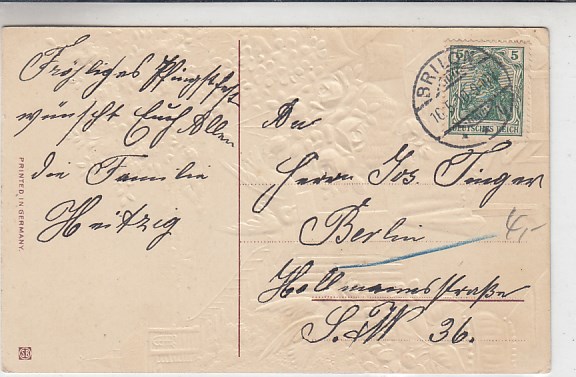 Fröhliges Pfingstfest
wünscht Euch Allen
die Familie
Heitzig
PRINTED IN GERMANY.
BRILON
5
DEUTSCHES REICH
An
Herrn Jos. Tinger
Berlin
Hollmannsstraße
S.W 36.
4,-